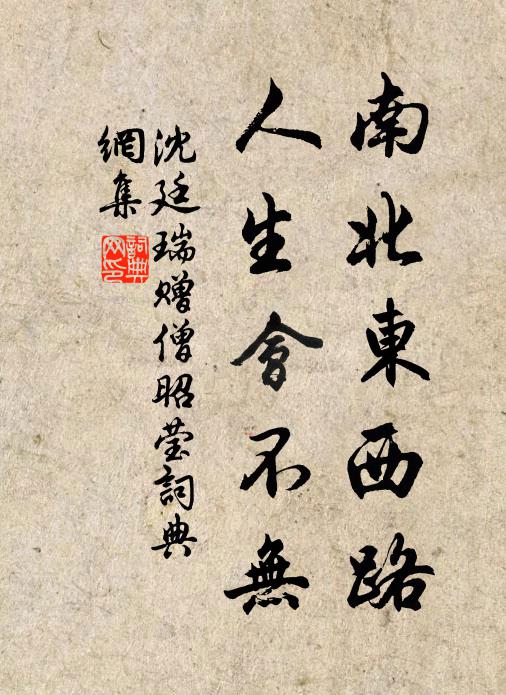 南北東西路
人生會不無
沈廷瑞贈僧昭莹詞典
網集
詞典
网印